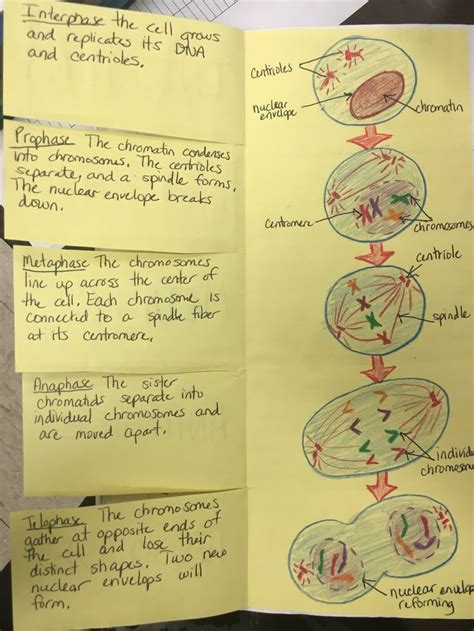 Interphase the cell grows
and replicates its DNA
and centrioles.
Centrioles
nuclear
envelope
chromatin
Prophase The chromatin condenses
into chromosomes. The centrioles
separate, and a spindle forms.
The nuclear envelope breaks
down.
Centromere
chromosomes
Metaphase The chromosomes
line up across the center of
the cell. Each chromosome is
connected to a spindle fiber
at its centromere.
centriole
spindle
Anaphase The sister
chromatids separate into
individual chromosomes and
are moved apart.
individual
chromosome
Telophase The chromosomes
gather at opposite ends of
the cell and lose their
distinct shapes. Two new
nuclear envelops will
form.
nuclear envelope
reforming